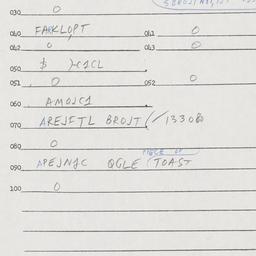 030 O
040 FARKLOPT 041 O
042 O 043 O
050 $
051 O 052 O
060 AMOJC1
070 AREJFTL BROJT (/13308
080 O
PIECE OF
090 APEJNJC OGLE (TOAST
100 O